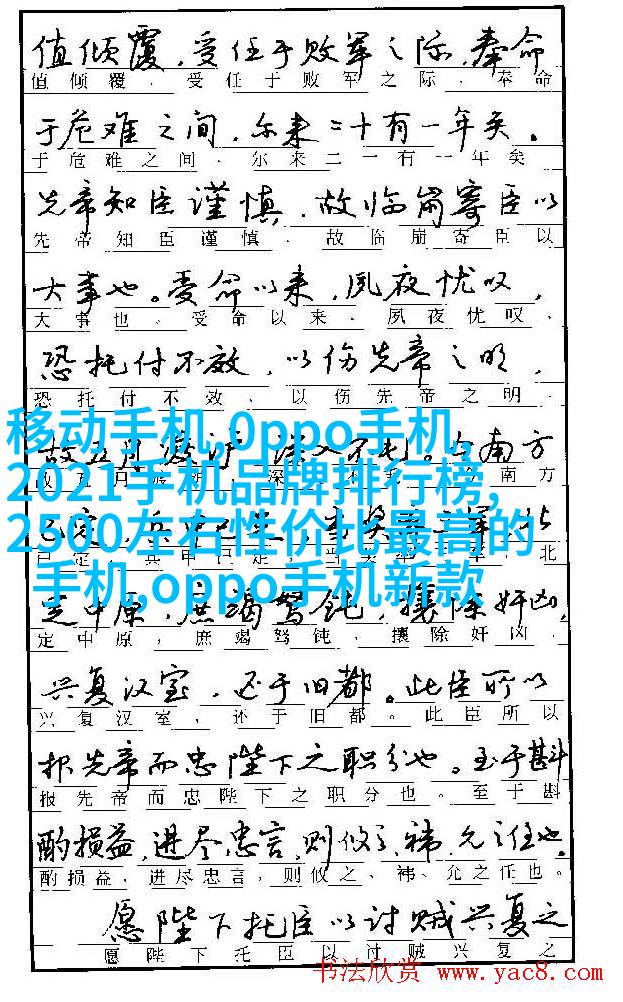 值倾覆,受任于败军之际,奉命
值倾覆,受任于败军之际、奉命
于危难之间,尔来二十有一年矣。
于危难之间,尔来二一有一年矣
先帝知臣谨慎,故临崩寄臣以
先帝知臣谨慎,故临崩寄臣以
大事也。受命以来,夙夜忧叹,
大事也、受命以来、夙夜忧叹、
恐托付不效,以伤先帝之明,
恐托付不效、以伤先帝之明,
移动手机,0ppo手机,
故五月渡泸,深入不毛。今南方
南方
2021手机品牌排行榜,
2500左右性价比最高的
北
已定,兵甲已足,当奖 三军,北
手机,oppo手机新款
定中原,庶竭驽钝,攘除奸凶,
定中原,庶竭驽钝,攘除奸凶,
兴复汉室,还于旧都。此臣所以
兴复汉室,还于旧都。此臣所以
报先帝而忠陛下之职分也。至于斟
报先帝而忠陛下之职分也。至于斟
酌损益,进尽忠言,则攸之、祎、允之任也。
酌损益,进尽忠言,则攸之、祎、允之任也。
愿陛下托臣以讨贼兴复之
愿陛下托臣以讨贼兴复之
书法欣赏 www.yac8.com